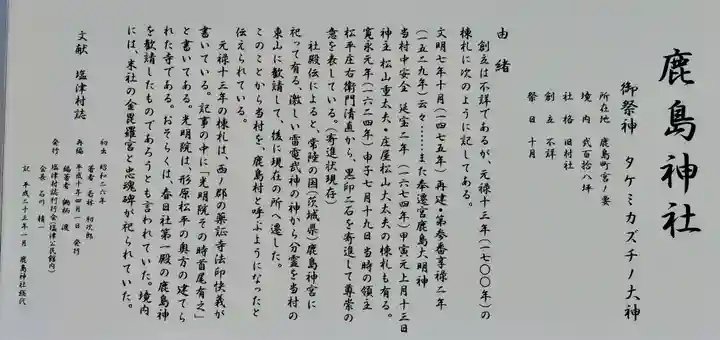 鹿島神社
御祭神 タケミカズチノ大神
所在地 鹿島町宮ノ要
境内 弐百拾八坪
社格 旧村社
創立 不詳
祭日 十月
由緒
創立は不詳であるが、元禄十三年(一七〇〇年)の
棟札に次のように記してある。
文明七年十月(一四七五年)再建・第参番享禄二年
(一五二九年)云々……また奉遷宮鹿島大明神
当村中安全 延宝二年(一六七四年)甲寅元上月十三日
神主 松山重太夫・庄屋松山大太夫の棟札も有る。
寛永元年(一六二四年)甲子七月十九日当時の領主
松平庄右衛門清直から、黒印二石を寄進して尊崇の
意を表している。(寄進状現存)
社殿伝によると、常陸の国(茨城県)鹿島神宮に
祀って有る、激しい雷電武神の神から分霊を当村の
東山に勧請して、後に現在の所へ遷した。
このことから当村を、鹿島村と呼ぶようになったと
伝えられている。
元禄十三年の棟札は、西ノ郡の薬証寺法印快義が
書いている。記事の中に「光明院その時首尾有之」
と書いてある。光明院は、形原松平の奥方の建てら
れた寺である。おそらくは、春日社第一殿の鹿島神
を勧請したものであろうとも言われていた。境内
には、末社の金毘羅宮と忠魂碑が祀られていた。
文献 塩津村誌
初出 昭和二六年
著者 若林 初次郎
再編 平成十年四月一日 発行
編著者 鋤柄 渡
発行 塩津村誌刊行会(塩津公民館内)
会長 石川 精一
記 平成二十五年一月 鹿島神社総代